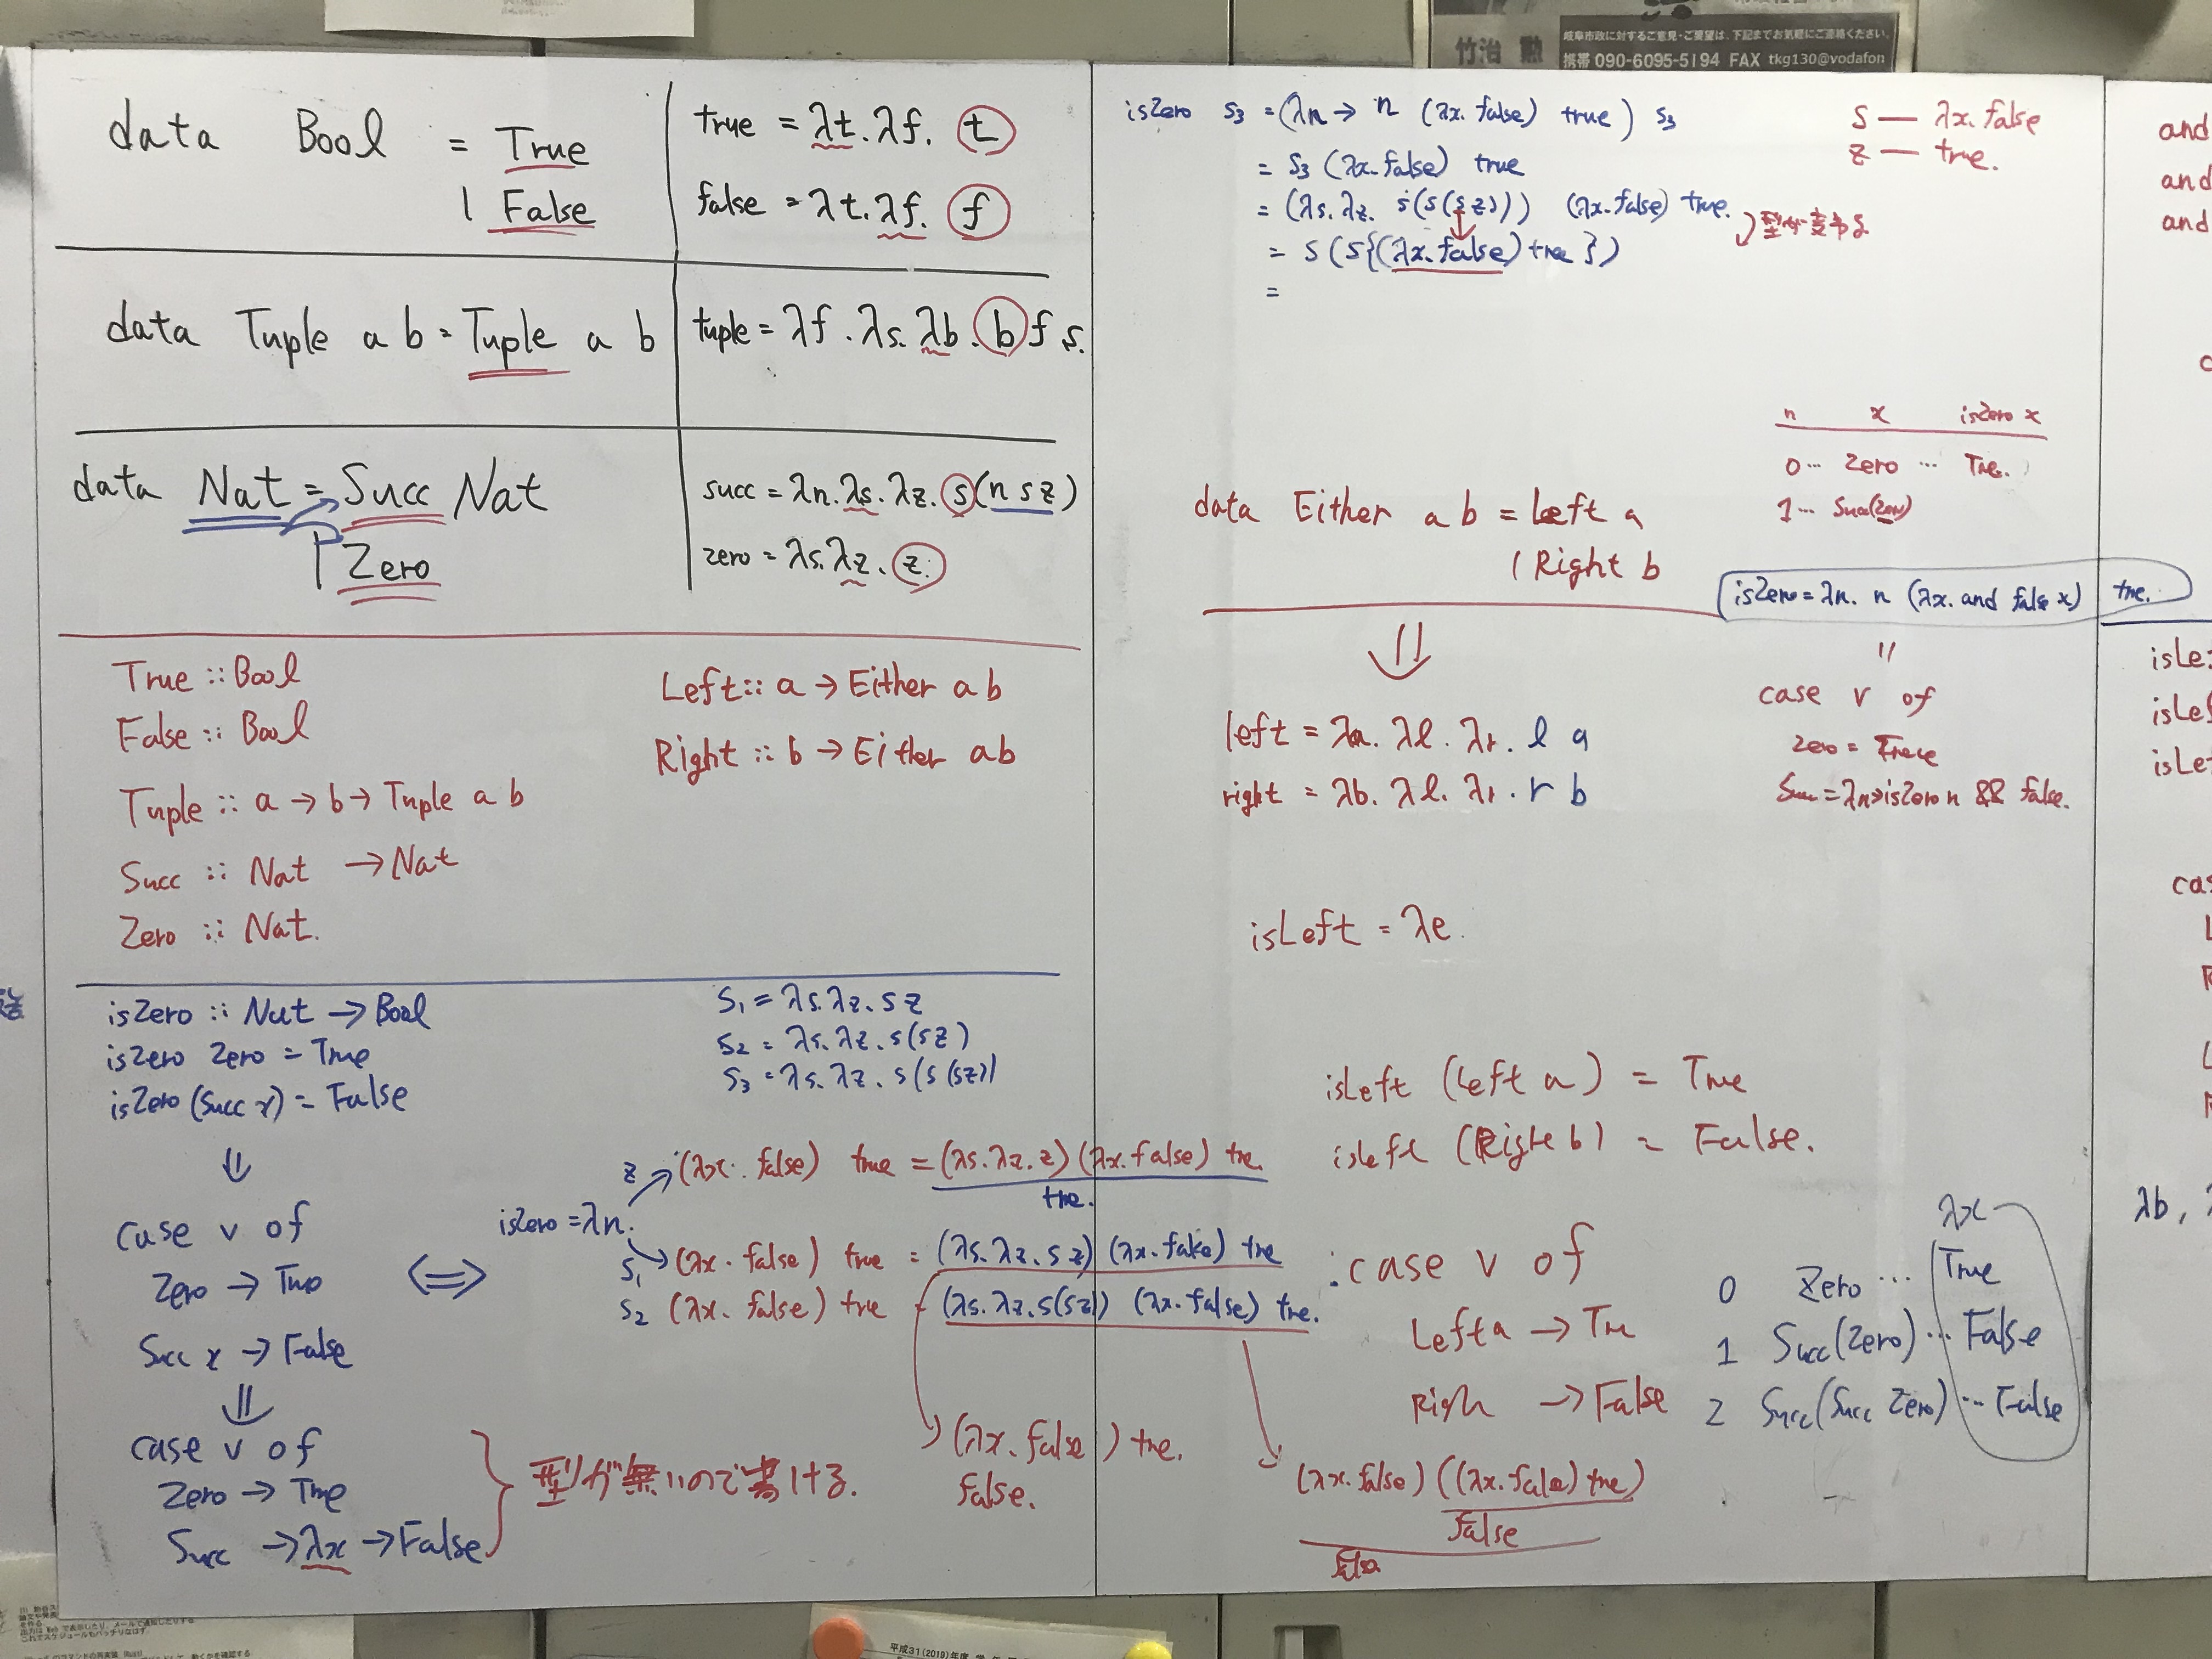 岐阜市政に対するご意見・ご要望は、下記までお気軽にご連絡ください。
竹治 勲
携帯 090-6095-5194 FAX tkg130@vodafon
data Bool = True
| False
true = λt.λf. t
false = λt.λf. f
data Tuple a b = Tuple a b
tuple = λf.λs.λb. b f s.
data Nat = Succ Nat
| Zero
succ = λn.λs.λz. s(n s z)
zero = λs.λz. z.
True :: Bool
False :: Bool
Tuple :: a → b → Tuple a b
Succ :: Nat → Nat
Zero :: Nat.
Left :: a → Either a b
Right :: b → Either a b
isZero :: Nat → Bool
isZero Zero = True
isZero (Succ x) = False
⇓
case v of
Zero → True
Succ x → False
⇓
case v of
Zero → True
Succ → λx → False
型が無いので書ける.
S₁ = λs.λz. s z
S₂ = λs.λz. s(s z)
S₃ = λs.λz. s(s(sz))
⇔
isZero = λn.
z (λx. false) true = (λs.λz.z)(λx.false) true.
true.
S₁ (λx. false) true = (λs.λz. s z)(λx.false) true
S₂ (λx. false) true = (λs.λz.s(sz)) (λx.false) true.
(λx. false) true.
false.
(λx.false)((λx.false) true)
False
isZero S₃ = (λn → n (λx. false) true) S₃
= S₃ (λx.false) true
= (λs.λz. s(s(s z))) (λx.false) true.
= s(s{(λx.false) true})
=
S — λx.false
z — true.
n x isZero x
0 … Zero … True.
1 … Succ(Zero)
data Either a b = Left a
| Right b
⇓
left = λa. λl. λr. l a
right = λb. λl. λr. r b
isZero = λn. n (λx. and false x) true.
=
case v of
Zero = True
Succ = λn → isZero n && false.
isLeft = λe.
isLeft (Left a) = True
isLeft (Right b) = False.
case v of
Left a → True
Right → False
λx
0 Zero … True
1 Succ(Zero) … False
2 Succ(Succ Zero) … False
and
and
and
λb,
平成31(2019)年度